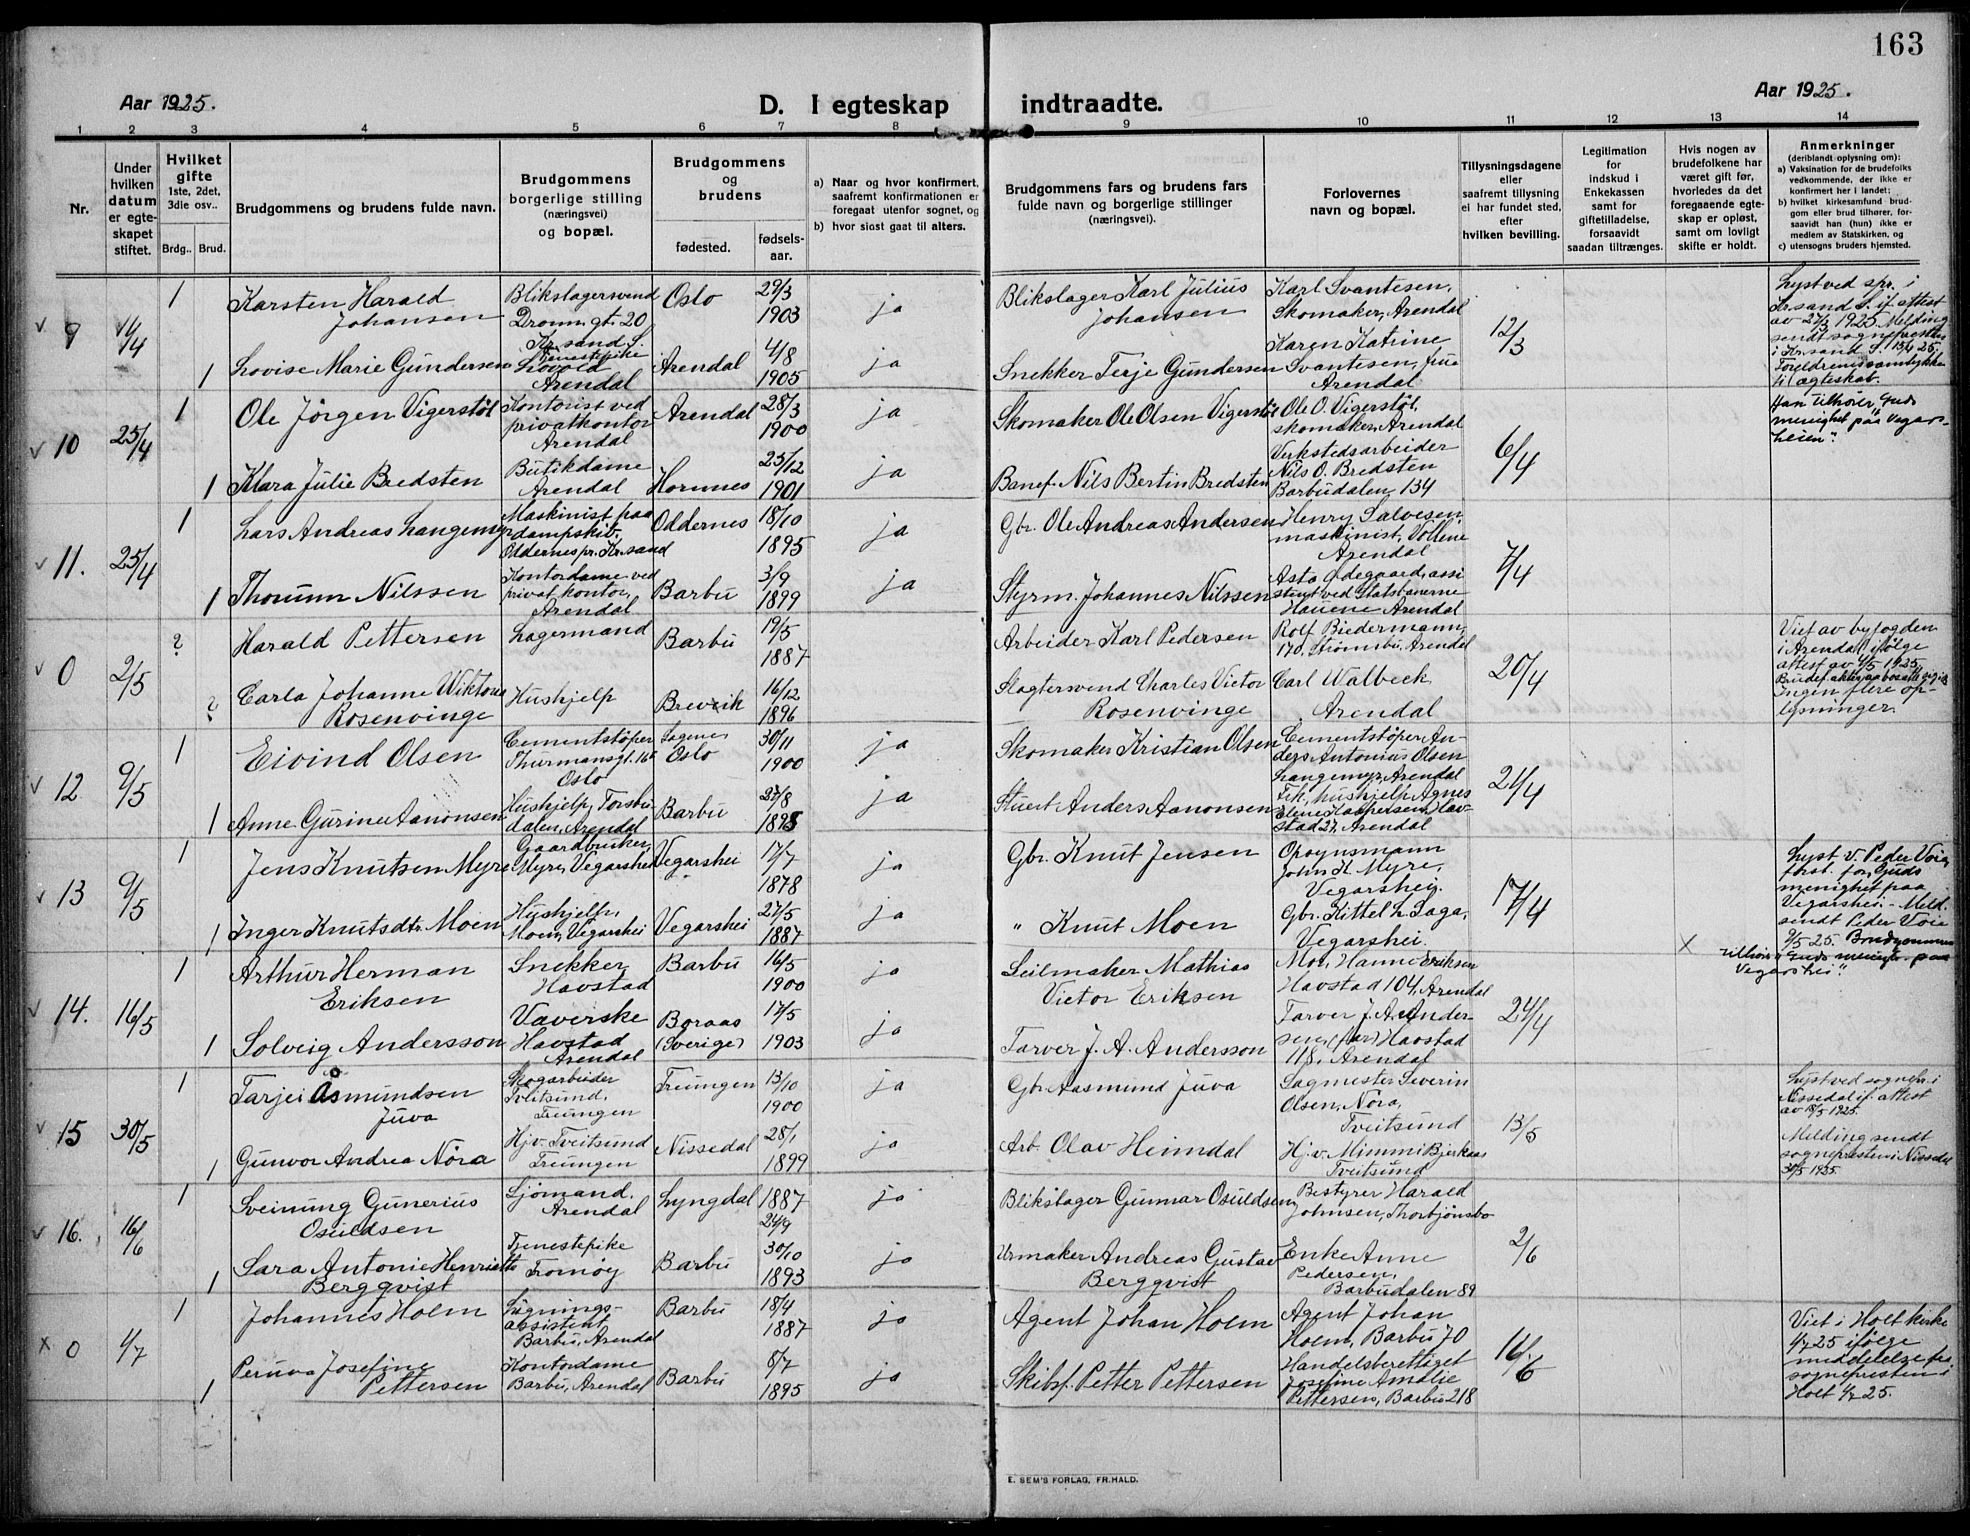 163
Aar 1925.
D. I egteskap indtraadte.
Aar 1925.
1 2 3 4 5 6 7 8 9 10 11 12 13 14
Nr.
Under
hvilken
datum
er egte-
skapet
stiftet.
Hvilket
gifte
1ste, 2det,
3die osv..
Brdg.. Brud.
Brudgommens og brudens fulde navn.
Brudgommens
borgerlige stilling
(næringsvei)
og bopæl.
Brudgommens
og
brudens
fødested.
fødsels-
aar.
a) Naar og hvor konfirmert,
saafremt konfirmationen er
foregaat utenfor sognet, og
b) hvor sidst gaat til alters.
Brudgommens fars og brudens fars
fulde navn og borgerlige stillinger
(næringsvei).
Forlovernes
navn og bopæl.
Tillysningsdagene
eller
saafremt tillysning
ei har fundet sted,
efter
hvilken bevilling.
Legitimation
for
indskud i
Enkekassen
samt for
giftetilladelse,
forsaavidt
saadan tiltrænges.
Hvis nogen av
brudefolkene har
været gift før,
hvorledes da det
foregaaende egte-
skap er opløst,
samt om lovligt
skifte er holdt.
Anmerkninger
(deriblandt oplysning om):
a) Vaksination for de brudefolks
vedkommende, der ikke er
konfirmert her i landet;
b) hvilket kirkesamfund brud-
gom eller brud tilhører, for-
saavidt han (hun) ikke er
medlem av Statskirken, og
c) utensogns bruders hjemsted.
9
1
Karsten Harald
Johansen
Blikslagersvend
Dronn. gt. 20
Kr. sand S.
Oslo
29/3
1903
ja
Blikslager Karl Julius
Johansen
Karl Svantesen,
Skomaker, Arendal
12/3
Lyst ved spr. i
Kr. sand S. if. attest
av 27/3 1925. Melding
sendt sognepresten
i Kr. sand S.
til ægteskab.
1
Lovise Marie Gundersen
Tjenestepike
Arendal
Arendal
4/8
1905
ja
Snekker Terje Gundersen
Karen Katrine
Svantesen, frue
Arendal
10
25/4
1
Ole Jörgen Vigerstöl
Kontorist ved
privatkontor
Arendal
Arendal
28/3
1900
ja
Skomaker Ole Olsen Vigerstöl
Ole O. Vigerstöl,
skomaker, Arendal
6/4
Han tilhører "Guds
menighet paa Vegars-
heien".
1
Klara Julie Bredsten
Butikdame
Arendal
Hornnes
25/12
1901
ja
Banef. Nils Bertin Bredsten
Verkstedsarbeider
Nils O. Bredsten
Barbudalen 134
11.
25/4
1
Lars Andreas Langemyr
Maskinist paa
dampskib,
Oddernes pr. Kr. sand
Oddernes
18/10
1895
ja
Gbr. Ole Andreas Andersen
Henry Salvesen,
maskinist, Vollene
Arendal
7/4
1
Thorunn Nilssen
Kontordame ved
privat kontor,
Arendal
Barbu
3/9
1899
ja
Styrm. Johannes Nilssen
Asta Ødegaard, assi
stent ved Statsbanerne
Hauene Arendal
0
2/5
?
Harald Pettersen
Lagermand
Barbu
19/5
1887
Arbeider Karl Pedersen
Rolf Biedermann,
170, Strömsbu, Arendal
20/4
Viet av byfogden
i Arendal ifölge
attest av 4/5 1925.
Ingen flere op-
lysninger.
?
Carla Johanne Wiktoria
Rosenvinge
Hushjelp
Brevik
16/12
1896
Slagtersvend Charles Victor
Rosenvinge
Carl Walbeck
Arendal
12
9/5
1
Eivind Olsen
Cementstöper
Thurmansgt.
Oslo
Sagene,
Oslo
30/11
1900
ja
Skomaker Kristian Olsen
Cementstöper An-
ders Antonius Olsen
Langemyr, Arendal
21/4
1
Anne Gurine Aanonsen
Hushjelp, Torsbu-
dalen, Arendal
Barbu
27/8
1898
ja
Stuert Anders Aanonsen
Frk, hushjelp Agnes
Elene Kaspersen, Hav-
stad 27, Arendal
13
9/5
1
Jens Knutsen Myre
Gaardbruker,
Myre, Vegarshei
Vegarshei
17/7
1878
ja
Gbr. Knut Jensen
Opsynsmann
John K. Myre,
Vegarshei
17/4
Lyst v. Peder Voie,
forst. for Guds
menighet paa
Vegarshei. Meld.
sendt Peder Voie
9/5 25. Brudgommen
tilhører "Guds menigh. paa
Vegarshei".
1
Inger Knutsdtr. Moen
Hushjelp,
Moen, Vegarshei
Vegarshei
27/5
1887
ja
" Knut Moen
Gbr. Kittel L. Laga,
Vegarshei.
X
14.
16/5
1
Arthur Herman
Eriksen
Snekker
Havstad
Barbu
16/5
1900
ja
Seilmaker Mathias
Victor Eriksen
Mor, Hanne Eriksen
Havstad 104, Arendal
24/4
1
Solveig Andersson
Væverske
Havstad
Arendal
Boraas
(Sverige)
17/5
1903
ja
Farver J. A. Andersson
Farver J. A. Ander-
sen, (far) Havstad
118, Arendal
15
30/5
1
Tarjei Åsmundsen
Juva
Skogarbeider
Tveitsund,
Treungen
Treungen
13/10
1900
ja
Gbr. Aasmund Juva
Sagmester Severin
Olsen, Nöra,
Tveitsund
13/5
Lyst ved sognepr. i
Nissedal if. attest
Melding sendt
sognepresten i Nissedal
30/5 1925.
1
Gunvor Andrea Nöra
Hj.v. Tveitsund
Treungen
Nissedal
28/1
1899
ja
Arb. Olav Heimdal
Hj.v. Mimmi Bjerkaas
Tveitsund
16.
16/6
1
Sveinung Gunerius
Osuldsen
Sjömand,
Arendal
Lyngdal
1887
24/9
ja
Blikslager Gunnar Osuldsen
Bestyrer Harald
Johnsen, Thorbjönsbo
2/6
1
Sara Antonie Henriette
Bergqvist
Tjenestepike
Tromöy
Barbu
30/10
1893
ja
Urmaker Andreas Gustav
Bergqvist
Enke Anne
Pedersen,
Barbudalen 89
X 0
4/7
1
Johannes Holm
Lignings-
assistent
Barbu, Arendal
Barbu
18/4
1887
ja
Agent Johan Holm
Agent Johan
Holm, Barbu 70
16/6
Viet i Holt kirke
4/7 25 ifölge
meddelelse fra
sognepresten i
Holt 4/7 25.
1
Peruva Josefine
Pettersen
Kontordame
Barbu, Arendal
Barbu
8/7
1895
ja
Skibsf. Petter Pettersen
Handelsberettiget
Josefine Amalie
Pettersen, Barbu 218
E. SEM'S FORLAG, FR.HALD.